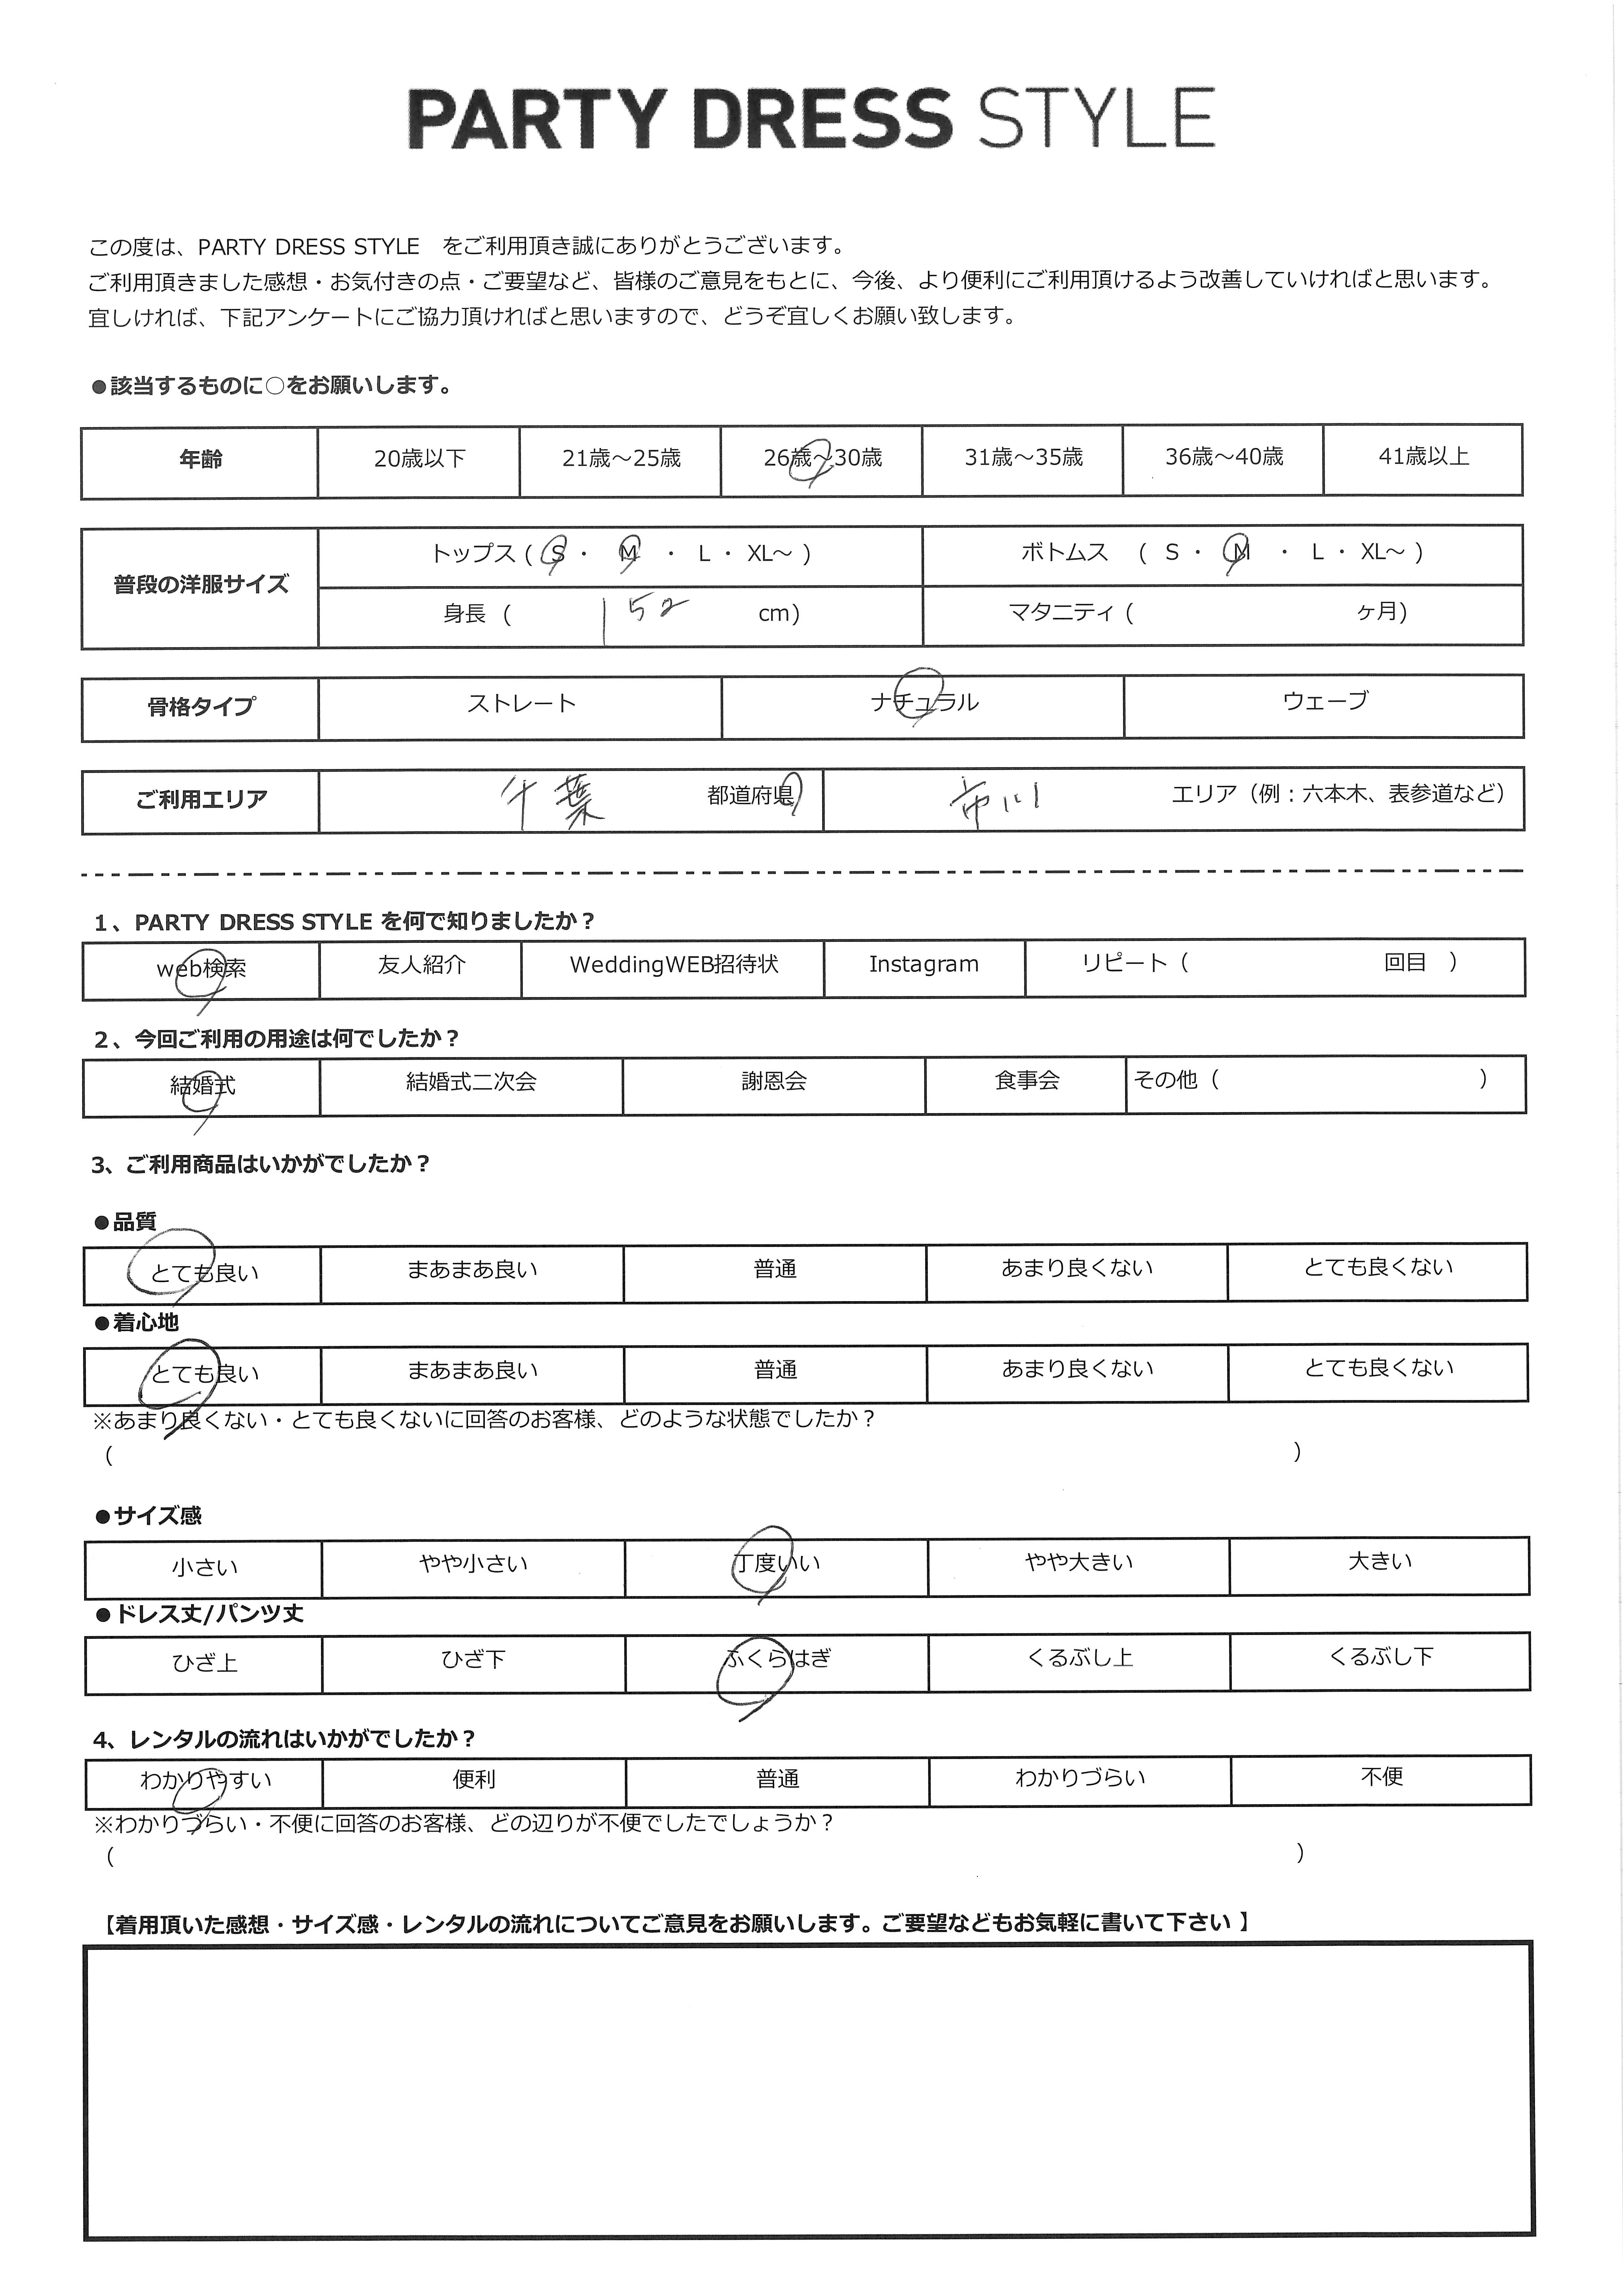 PARTY DRESS STYLE
この度は、PARTY DRESS STYLE　をご利用頂き誠にありがとうございます。
ご利用頂きました感想・お気付きの点・ご要望など、皆様のご意見をもとに、今後、より便利にご利用頂けるよう改善していければと思います。
宜しければ、下記アンケートにご協力頂ければと思いますので、どうぞ宜しくお願い致します。
●該当するものに○をお願いします。
年齢 20歳以下 21歳～25歳 26歳～30歳 31歳～35歳 36歳～40歳 41歳以上
普段の洋服サイズ
トップス ( S ・ M ・ L ・ XL～ ) ボトムス ( S ・ M ・ L ・ XL～ )
身長 ( 152 cm) マタニティ ( ヶ月)
骨格タイプ ストレート ナチュラル ウェーブ
ご利用エリア 千葉 都道府県 市川 エリア（例：六本木、表参道など）
1、PARTY DRESS STYLE を何で知りましたか？
web検索 友人紹介 WeddingWEB招待状 Instagram リピート（ 回目 ）
2、今回ご利用の用途は何でしたか？
結婚式 結婚式二次会 謝恩会 食事会 その他（ ）
3、ご利用商品はいかがでしたか？
●品質
とても良い まあまあ良い 普通 あまり良くない とても良くない
●着心地
とても良い まあまあ良い 普通 あまり良くない とても良くない
※あまり良くない・とても良くないに回答のお客様、どのような状態でしたか？
（ ）
●サイズ感
小さい やや小さい 丁度いい やや大きい 大きい
●ドレス丈/パンツ丈
ひざ上 ひざ下 ふくらはぎ くるぶし上 くるぶし下
4、レンタルの流れはいかがでしたか？
わかりやすい 便利 普通 わかりづらい 不便
※わかりづらい・不便に回答のお客様、どの辺りが不便でしたでしょうか？
（ ）
【着用頂いた感想・サイズ感・レンタルの流れについてご意見をお願いします。ご要望などもお気軽に書いて下さい 】